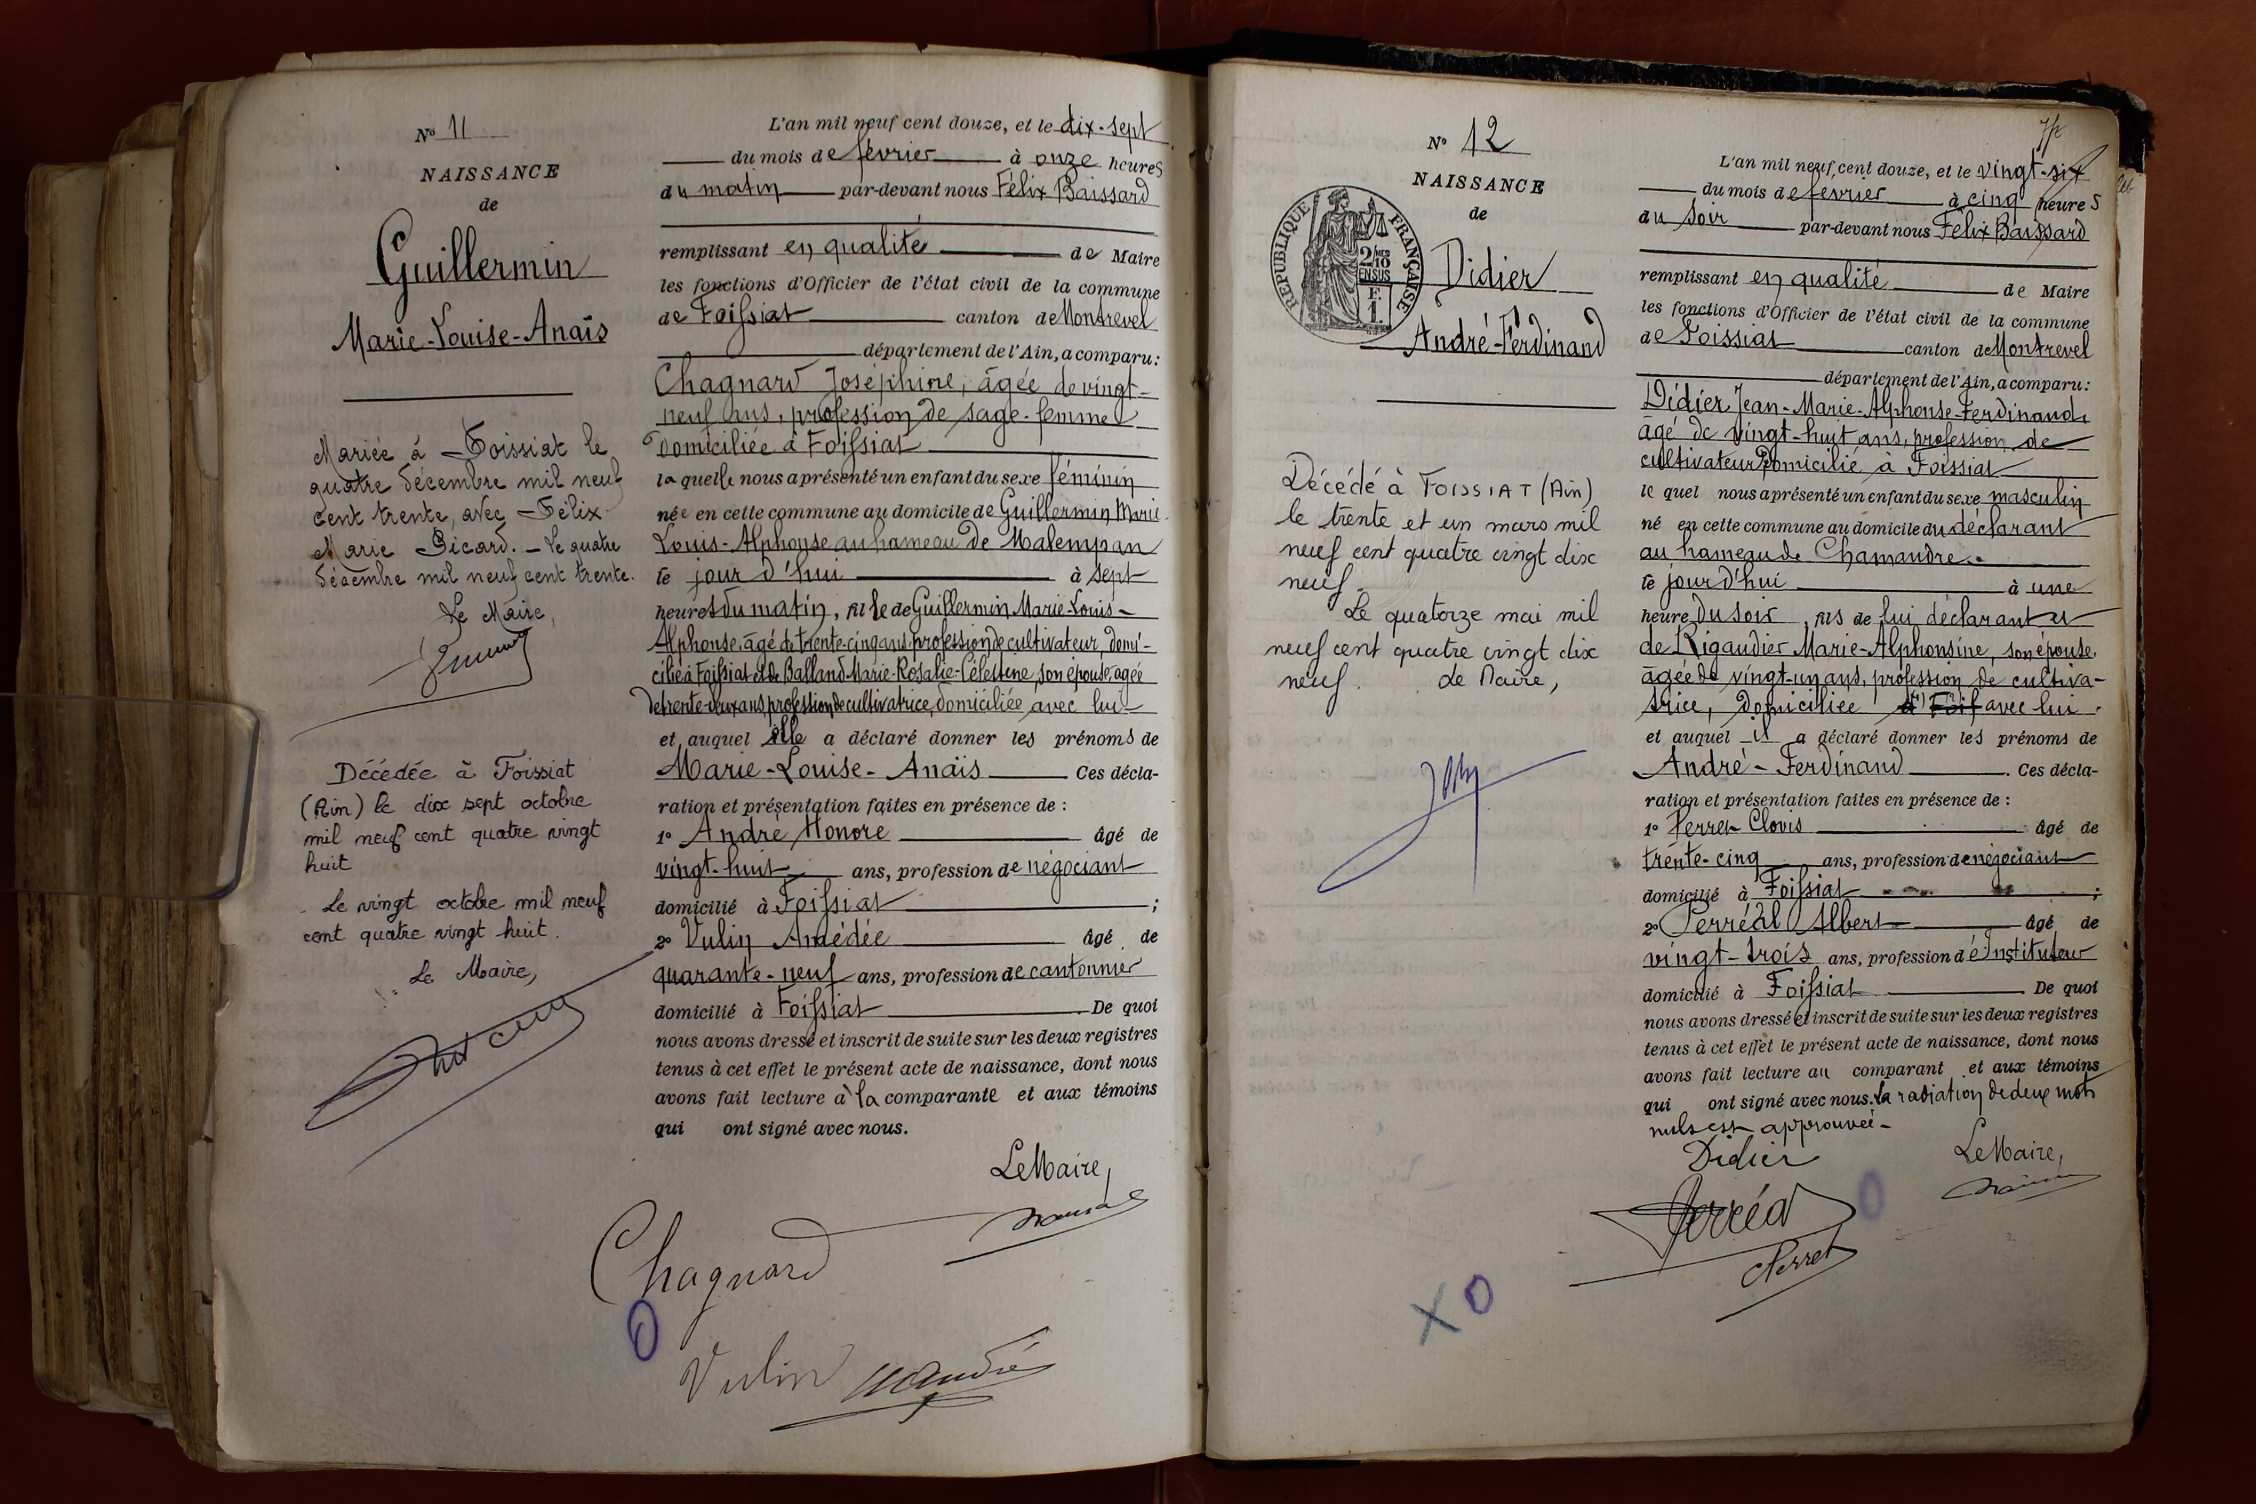 N° 11
NAISSANCE
de
Guillermin
Marie-Louise-Anaïs
Mariée à Foissiat le
quatre décembre mil neuf
cent trente, avec Félix
Marie Picard. - Le quatre
décembre mil neuf cent trente.
Le Maire,
Décédée à Foissiat
(Ain) le dix sept octobre
mil neuf cent quatre vingt
huit
Le vingt octobre mil neuf
cent quatre vingt huit.
Le Maire,
L'an mil neuf cent douze, et le dix-sept
du mois de février à onze heures
du matin par-devant nous Félix Baissard
remplissant en qualité de Maire
les fonctions d'Officier de l'état civil de la commune
de Foissiat canton de Montrevel
département de l'Ain, a comparu:
Chagnard Joséphine, âgée de vingt-
neuf ans, profession de sage-femme
domiciliée à Foissiat
laquelle nous a présenté un enfant du sexe féminin
née en cette commune au domicile de Guillermin Marie-
Louis-Alphonse au hameau de Malempan
le jour d'hui à sept
heures du matin, fille de Guillermin Marie-Louis-
Alphonse, âgé de trente-cinq ans, profession de cultivateur, domi-
cilié à Foissiat et de Balland Marie-Rosalie-Célestine, son épouse, âgée
de trente-deux ans, profession de cultivatrice, domiciliée avec lui
et auquel elle a déclaré donner les prénoms de
Marie-Louise-Anaïs Ces décla-
ration et présentation faites en présence de :
1° André Honoré âgé de
vingt-huit ans, profession de négociant
domicilié à Foissiat ;
2° Vulin Amédée âgé de
quarante-neuf ans, profession de cantonnier
domicilié à Foissiat De quoi
nous avons dressé et inscrit de suite sur les deux registres
tenus à cet effet le présent acte de naissance, dont nous
avons fait lecture à la comparante et aux témoins
qui ont signé avec nous.
Le Maire,
Chagnard
Vulin H André
N° 12
NAISSANCE
de
RÉPUBLIQUE FRANÇAISE
2/10
EN SUS
F.
1.
Didier
André-Ferdinand
Décédé à FOISSIAT (Ain)
le trente et un mars mil
neuf cent quatre vingt dix
neuf.
Le quatorze mai mil
neuf cent quatre vingt dix
neuf. Le Maire,
L'an mil neuf cent douze, et le vingt-six
du mois de février à cinq heures
du soir par-devant nous Félix Baissard
remplissant en qualité de Maire
les fonctions d'Officier de l'état civil de la commune
de Foissiat canton de Montrevel
département de l'Ain, a comparu:
Didier Jean-Marie-Alphonse-Ferdinand,
âgé de vingt-huit ans, profession de
cultivateur domicilié à Foissiat
lequel nous a présenté un enfant du sexe masculin
né en cette commune au domicile du déclarant
au hameau de Chamandre.
le jour d'hui à une
heure du soir, fils de lui déclarant et
de Rigaudier Marie-Alphonsine, son épouse,
âgée de vingt-un ans, profession de cultiva-
trice, domiciliée à Foiss avec lui
et auquel il a déclaré donner les prénoms de
André-Ferdinand . Ces décla-
ration et présentation faites en présence de :
1° Perret Clovis âgé de
trente-cinq ans, profession de négociant
domicilié à Foissiat ;
2° Perréal Albert âgé de
vingt-trois ans, profession d'Instituteur
domicilié à Foissiat De quoi
nous avons dressé et inscrit de suite sur les deux registres
tenus à cet effet le présent acte de naissance, dont nous
avons fait lecture au comparant et aux témoins
qui ont signé avec nous. La radiation de deux mots
nuls est approuvée-
Didier Le Maire,
Perréal
Perret
X O